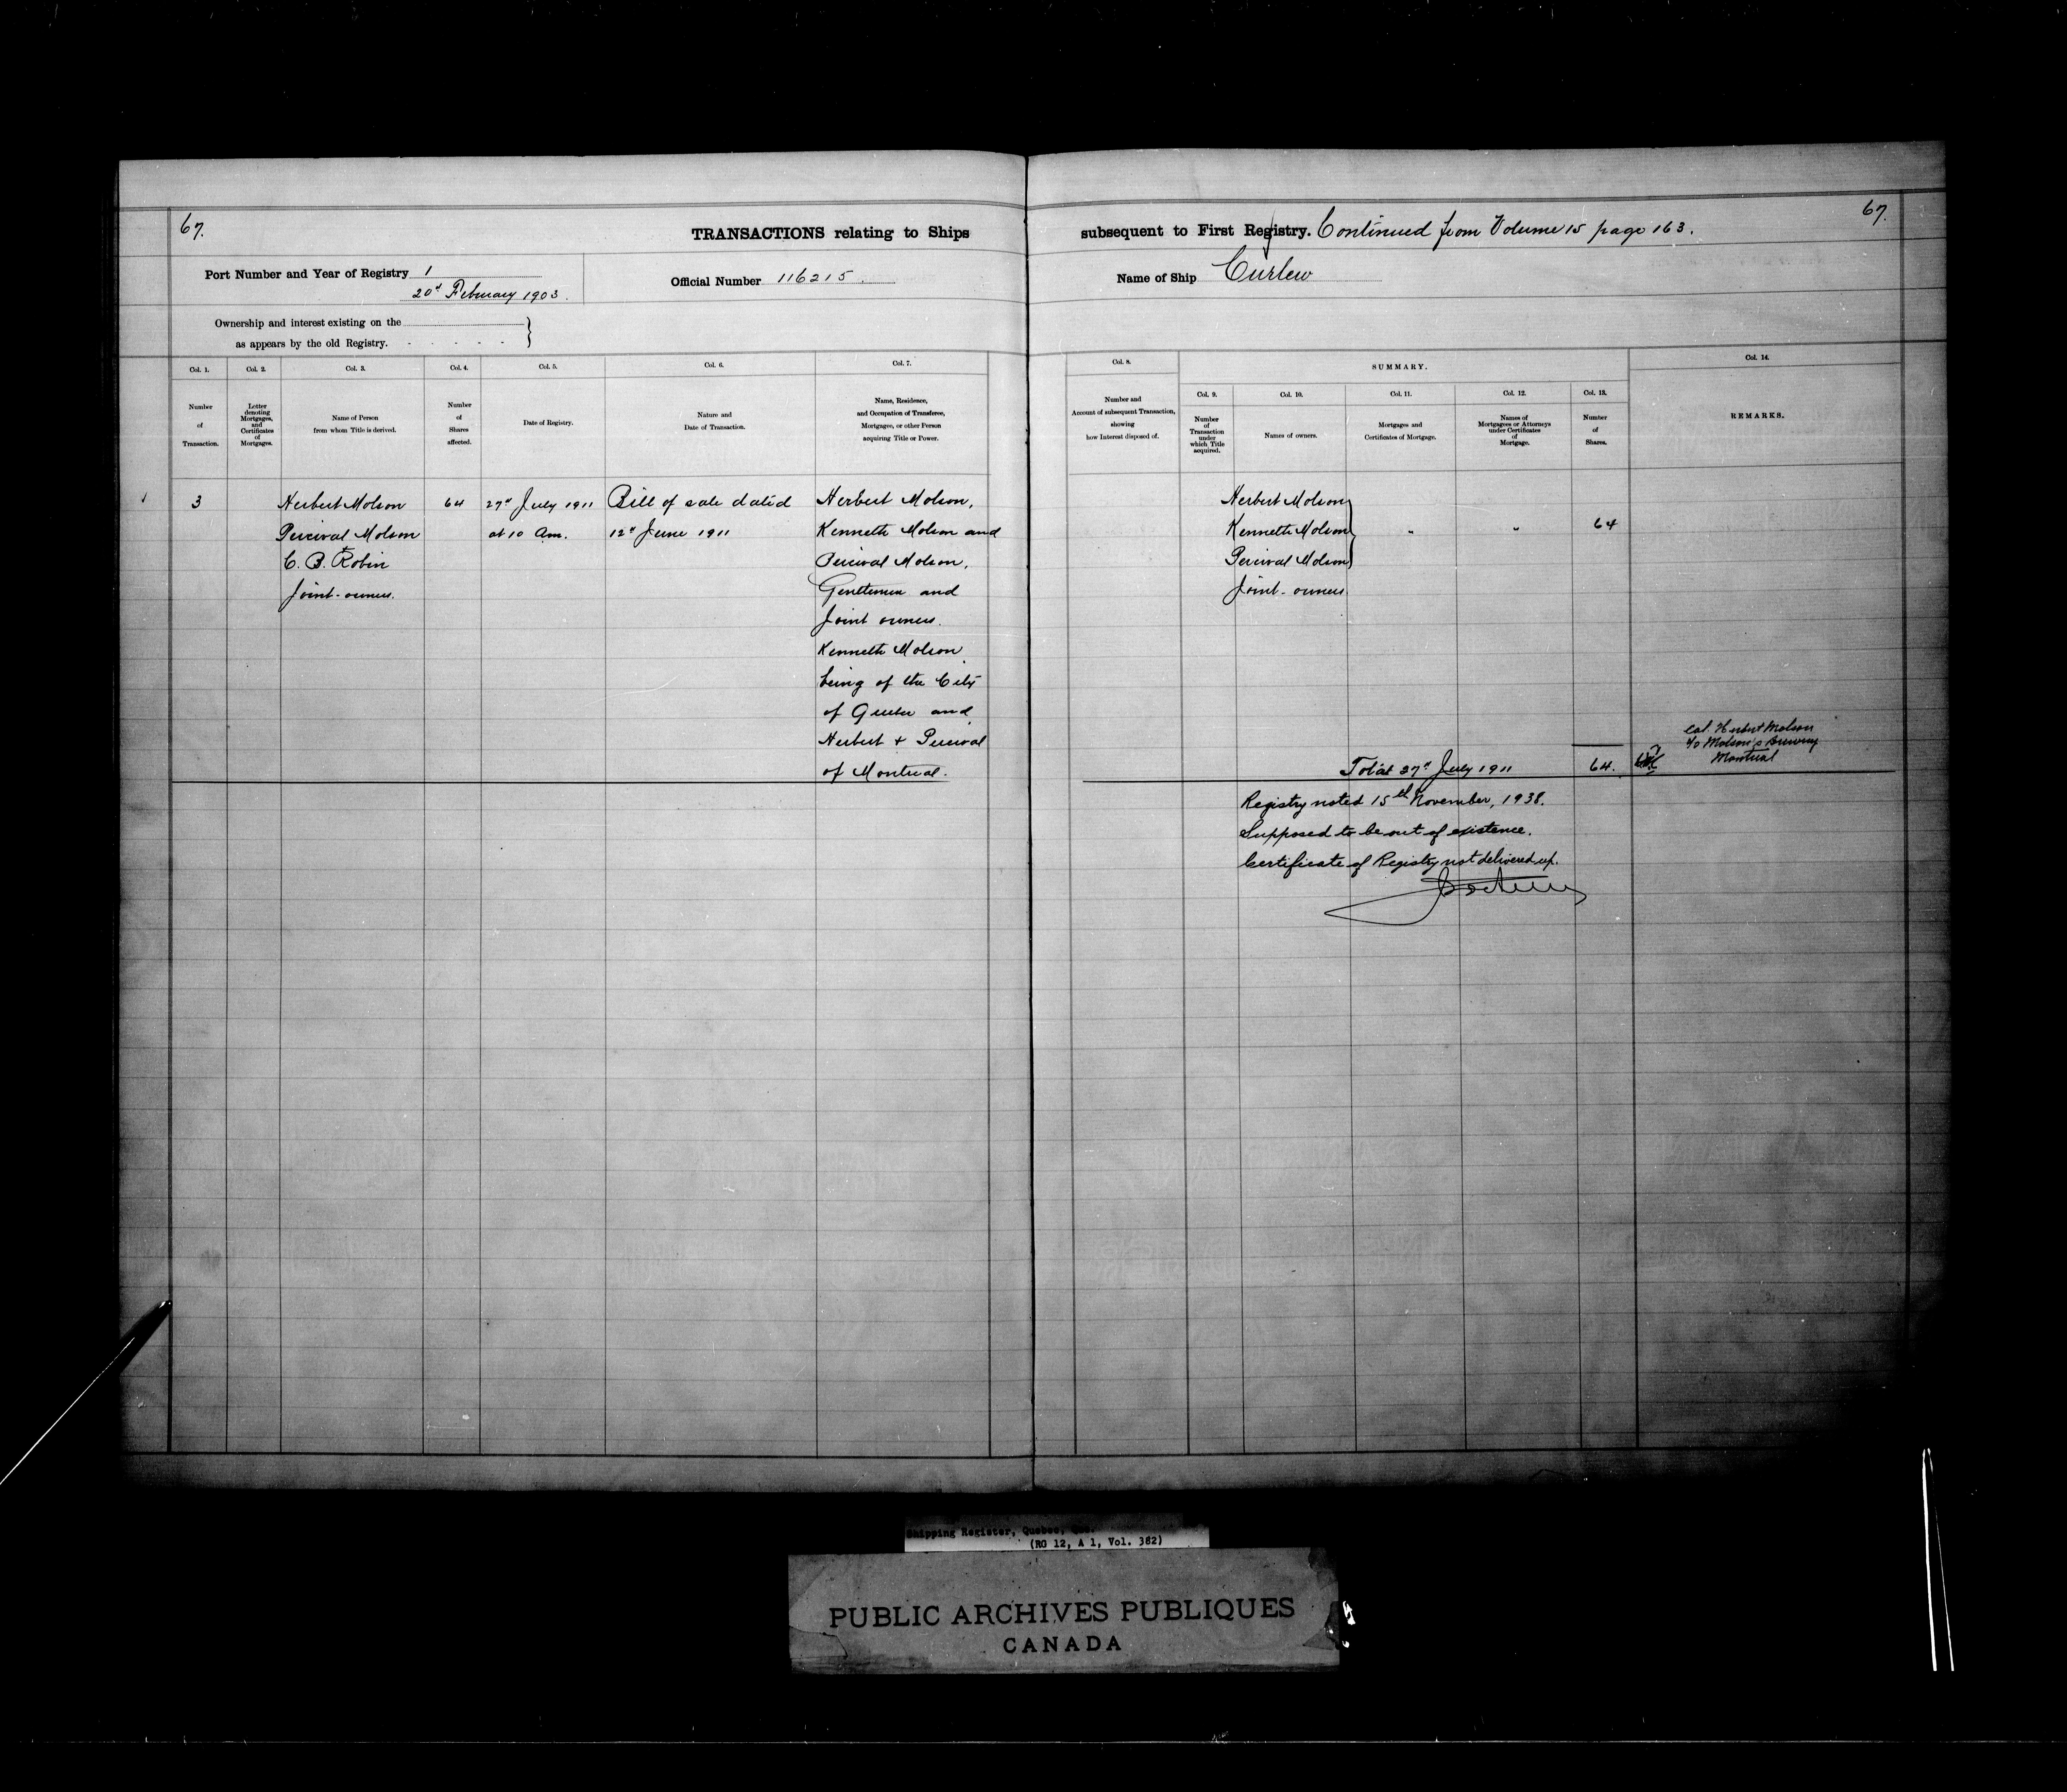 67.
67.
TRANSACTIONS relating to Ships subsequent to First Registry. Continued from Volume 15 page 163.
Port Number and Year of Registry 1
20th February 1903.
Official Number 116215.
Name of Ship Curlew
Ownership and interest existing on the
as appears by the old Registry.
Col. 1.
Number
of
Transaction.
Col. 2.
Letter
denoting
Mortgages,
and
Certificates
of
Mortgages.
Col. 3.
Name of Person
from whom Title is derived.
Col. 4.
Number
of
Shares
affected.
Col. 5.
Date of Registry.
Col. 6.
Nature and
Date of Transaction.
Col. 7.
Name, Residence,
and Occupation of Transferee,
Mortgagee, or other Person
acquiring Title or Power.
Col. 8.
Number and
Account of subsequent Transaction,
showing
how Interest disposed of.
SUMMARY.
Col. 9.
Number
of
Transaction
under
which Title
acquired.
Col. 10.
Names of owners.
Col. 11.
Mortgages and
Certificates of Mortgage.
Col. 12.
Names of
Mortgagees or Attorneys
under Certificates
of
Mortgage.
Col. 13.
Number
of
Shares.
Col. 14.
REMARKS.
3
Herbert Molson
Percival Molson
+
C. B. Robin
Joint-owners.
64
27th July 1911
at 10 Am.
Bill of sale dated
12th June 1911
Herbert Molson,
Kenneth Molson and
Percival Molson,
Gentlemen and
Joint owners.
Kenneth Molson
being of the City
of Quebec and
Herbert + Percival
of Montreal.
Herbert Molson
Kenneth Molson
Percival Molson
Joint-owners
"
"
64
Total 27th July 1911
64.
Col. Herbert Molson
c/o Molson's Brewery
Montreal
Registry noted 15th November, 1938.
Supposed to be out of existence.
Certificate of Registry not delivered up.
Shipping Register, Quebec, Que.
(RG 12, A 1, Vol. 382)
PUBLIC ARCHIVES PUBLIQUES
CANADA